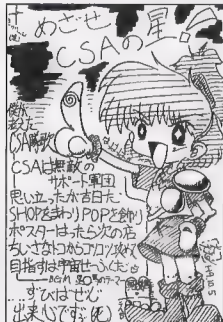 めざせ
CSAの星!!
CSA隊歌
CSAは無敵の
サポート軍団
思い立ったが吉日だ
SHOPをまわりPOPを飾り
ポスターはったら次の店
ちいさなトコからコツコツ攻め
目指すは宇宙せーふくだ
ずびばぜん
出来心です